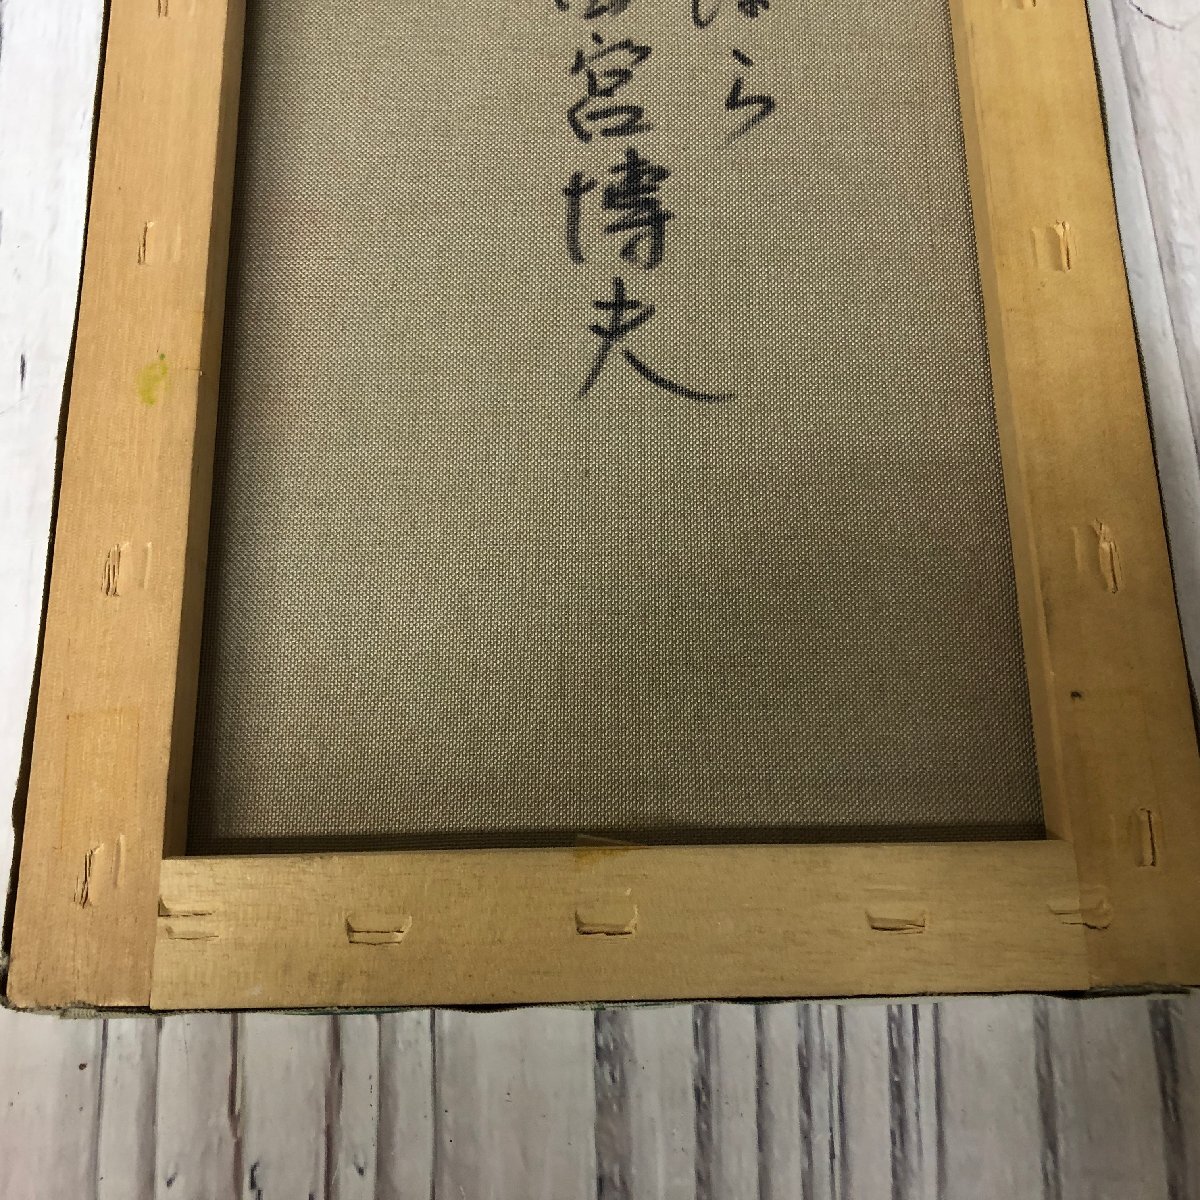 ら
宮博夫